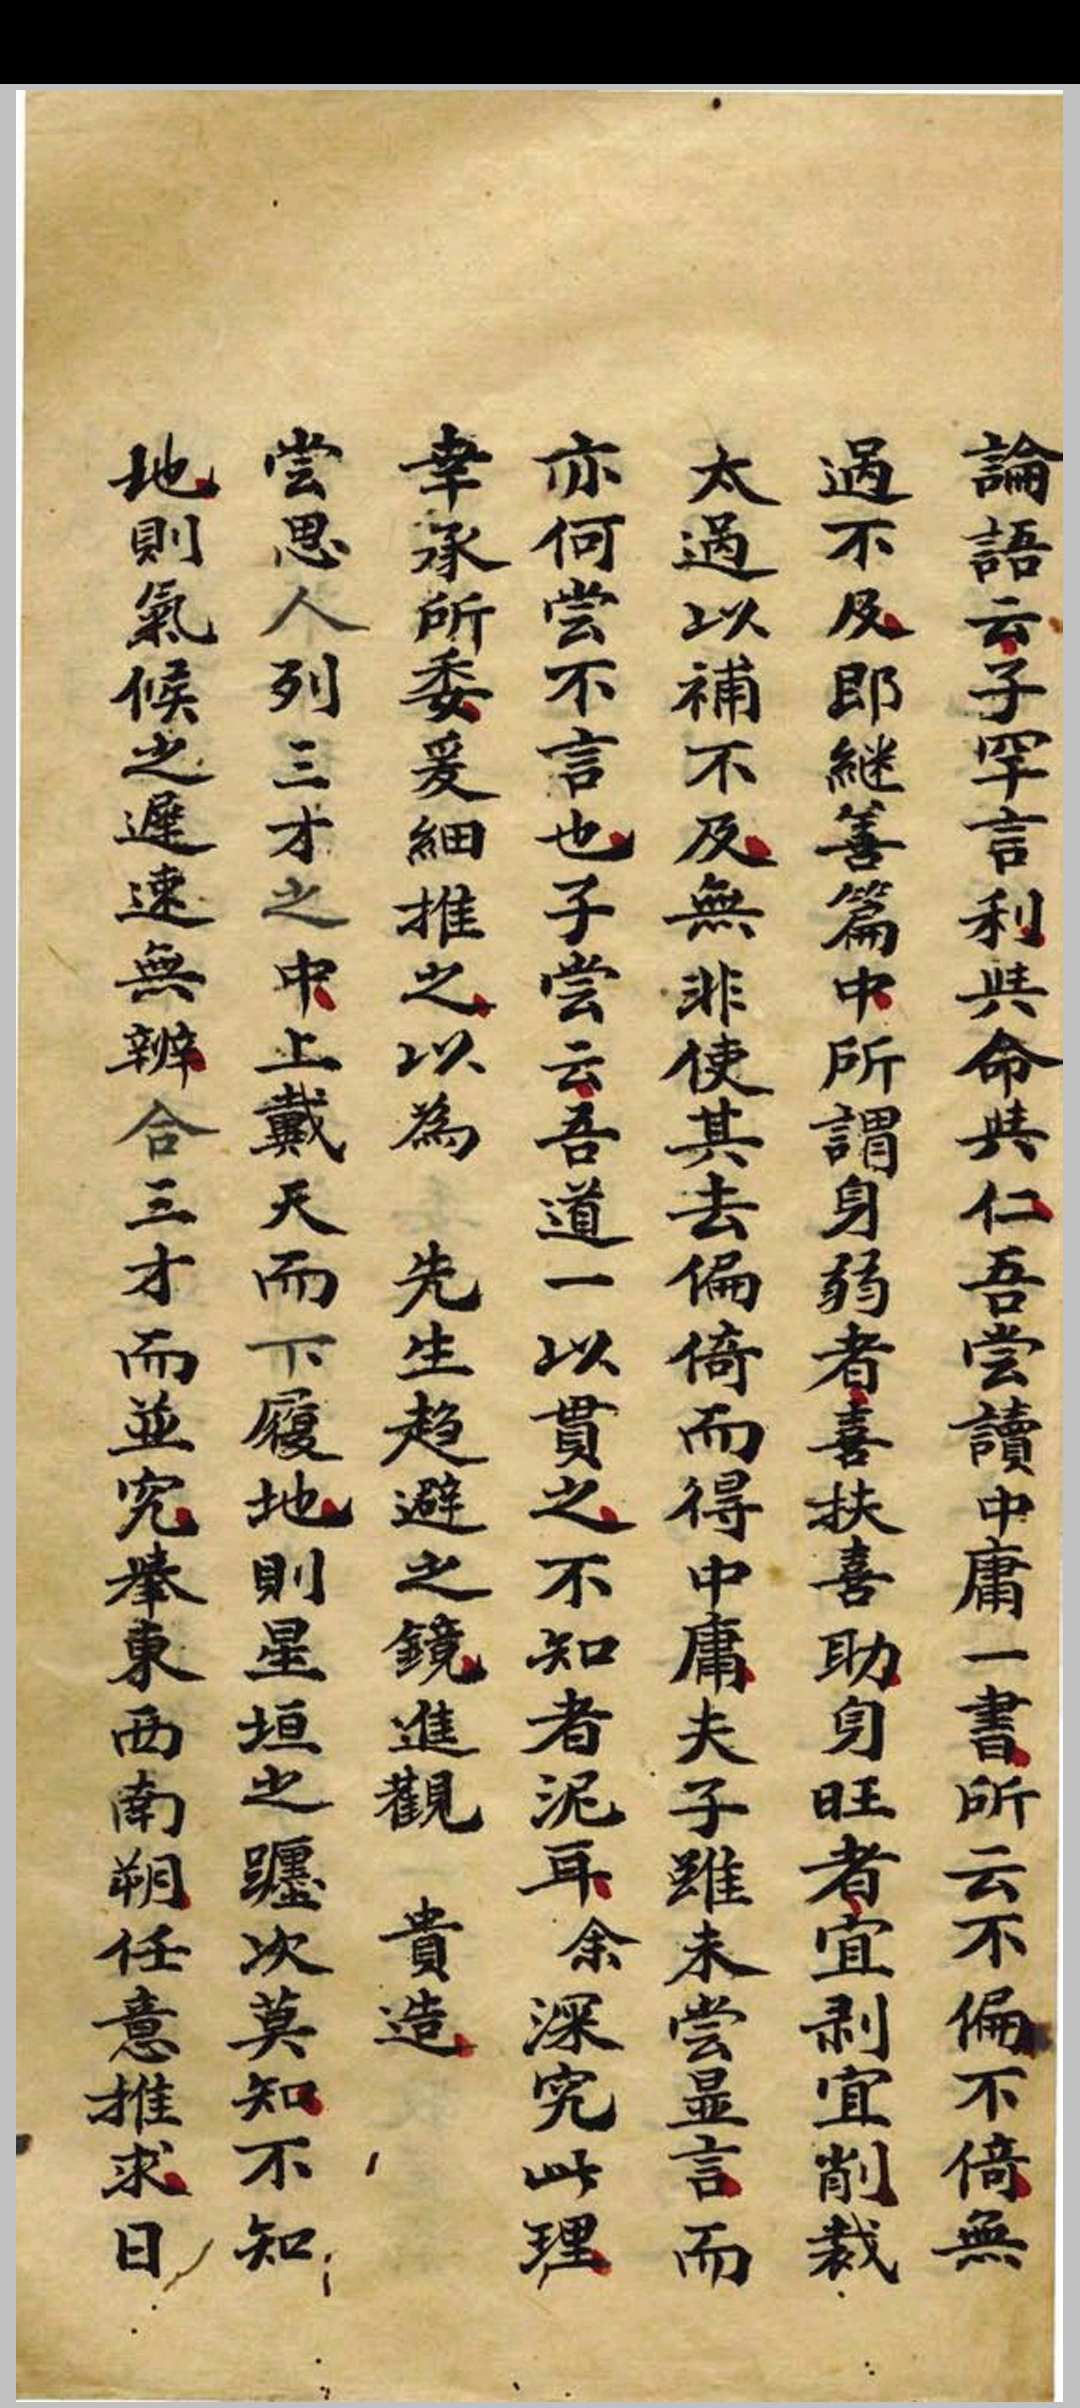 論語云子罕言利與命與仁吾嘗讀中庸一書所云不偏不倚無
過不及即繼善篇中所謂身弱者喜扶喜助身旺者宜剥宜削裁
太過以補不及無非使其去偏倚而得中庸夫子雖未嘗显言而
亦何嘗不言也子嘗云吾道一以貫之不知者泥耳余深究此理
幸承所委爰細推之以為 先生趋避之鏡進觀 貴造
嘗思人列三才之中上戴天而下履地則星垣之躔次莫知不知
地則氣候之遲速無辨合三才而並究舉東西南朔任意推求日